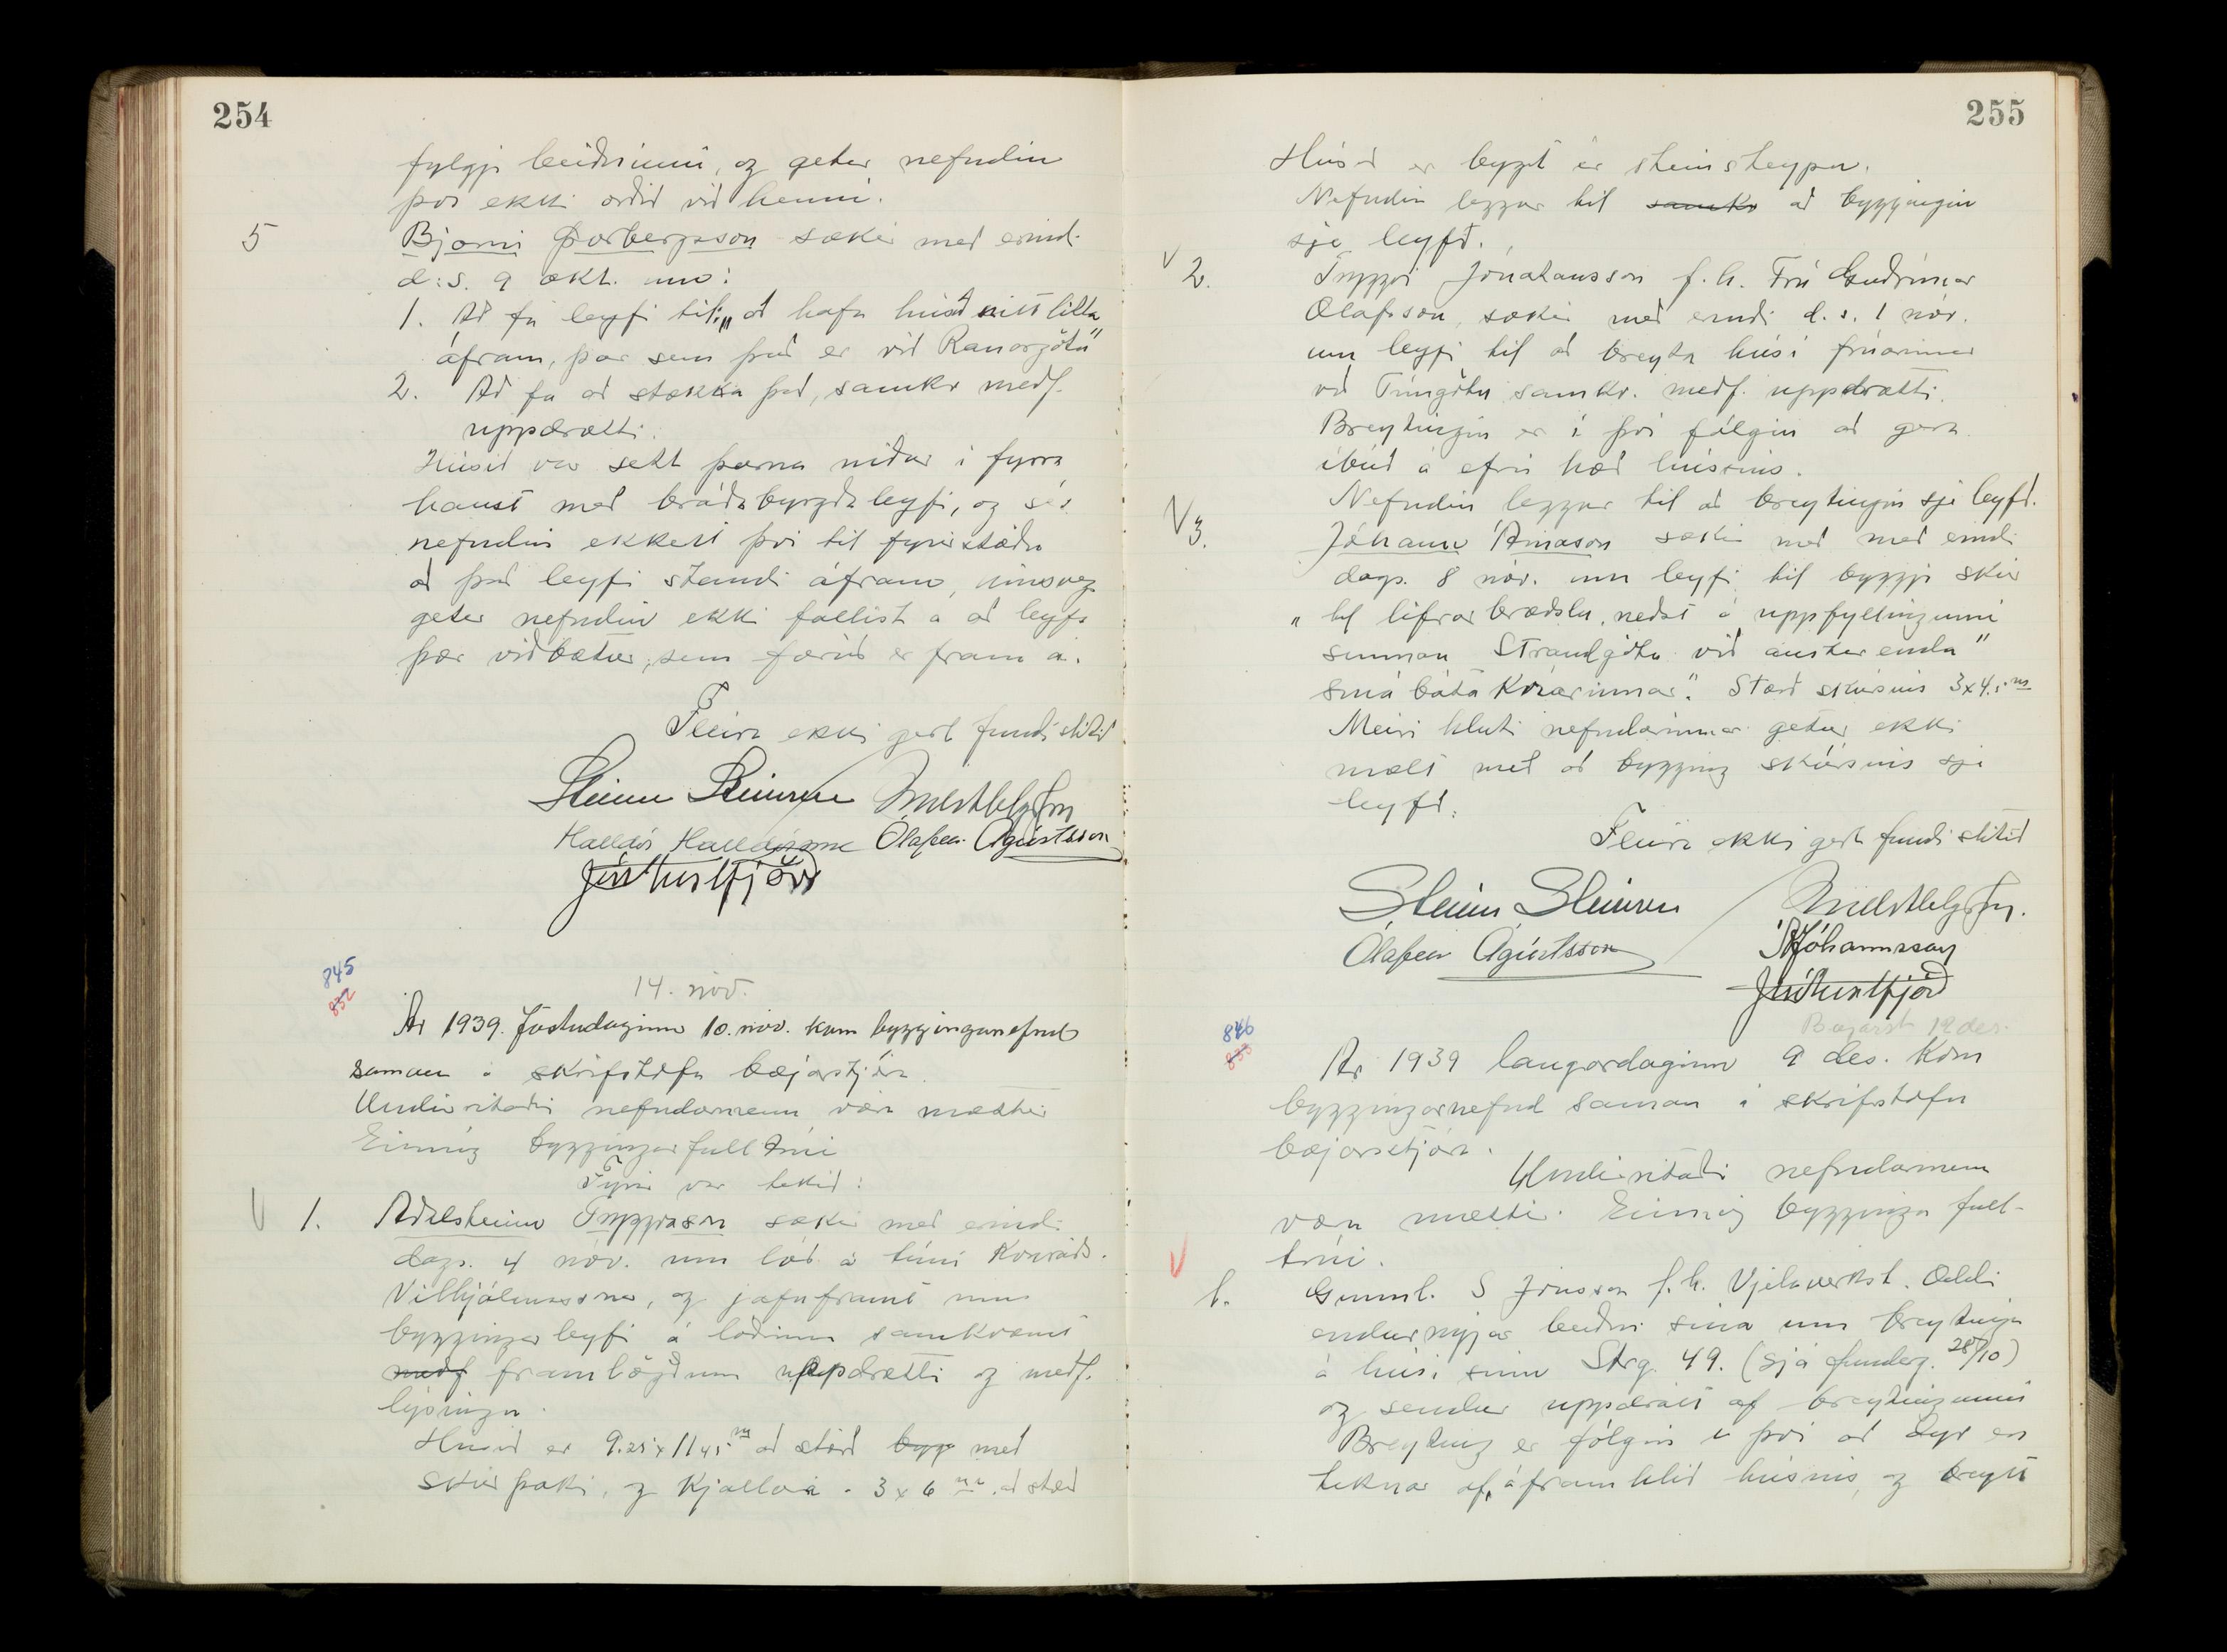 254
fylgji beiðninni, og getur nefndin
því ekki orðið við henni.
5 Bjarni Þorbergsson sækir með erind.
d:s. 9 okt. um:
1. Að fá leyfi til: „að hafa húsið sitt litla
áfram, þar sem það er við Ránargötu"
2. Að fá að stækka það, samkv medf.
uppdrætti.
Húsið var sett þarna niður í fyrra
haust með bráðabyrgða leyfi, og sér
nefndin ekkert því til fyrirstöðu
að það leyfi standi áfram, hinsveg
getur nefndin ekki fallist á að leyfa
þær viðbætur, sem farið er fram á.
Fleira ekki gert fundi slitið
Steinn Steinsen
Halldór Halldórsson Ólafur Ágústsson
845
852
14. nóv.
Ár 1939. föstudaginn 10. nóv. kom bygginganefnd
saman á skrifstofu bæjarstjóra
Undirritaðir nefndarmenn vóru mættir
Einnig byggingarfulltrúi
Fyrir var tekið:
V 1. Aðalsteinn Tryggvason sækir með erindi
dags. 4 nóv. um lóð á túni Konráðs.
Vilhjálmssonar, og jafnframt um
byggingarleyfi á lóðinni samkvæmt
medf framlögðum uppdrætti og medf.
lýsingu.
Húsið er 9.25 x 11.45 m að stærð bygg með
skúr þaki, og kjallara 3 x 6 m að stærð
255
Húsið er byggt úr steinsteypu.
Nefndin leggur til samkv að byggingin
sje leyfð.
V 2. Tryggvi Jónatansson f.h. Frú Guðrúnar
Ólafsson, sækir með erindi d.s. 1 nóv.
um leyfi til að breyta húsi frúarinnar
við Túngötu samkv. medf. uppdrætti.
Breytingin er í því fólgin að gera
íbúð á efri hæð hússins.
Nefndin leggur til að breytingin sje leyfð.
V 3. Jóhann Árnason sækir með með erindi
dags. 8 nóv. um leyfi til byggja skúr
„til lifrarbræðslu, neðst á uppfyllingunni
sunnan Strandgötu við austur enda"
smábáta kvíarinnar". Stærð skúrsins 3x4. m
Meiri hluti nefndarinnar getur ekki
mælt með að bygging skúrsins sje
leyfð.
Fleira ekki gert fundi slitið
Steinn Steinsen
Ólafur Ágústsson Jóhannsson
846
853
Bæjarst 12 des.
Ár 1939 laugardaginn 9 des. kom
byggingarnefnd saman á skrifstofu
bæjarstjóra.
Undirritaðir nefndarmenn
vóru mættir. Einnig bygginga full-
trúi.
V 1. Gunnl. S Jónsson f.h. Vjelaverkst. Oddi
endurnýjar beiðni sína um breytingu
á húsi sínu Strg. 49. (sjá fundarg. 28/10)
og sendir uppdrátt af breytingunni
Breyting er fólgin í því að dyr eru
teknar af, á framhlið hússins, og breytt